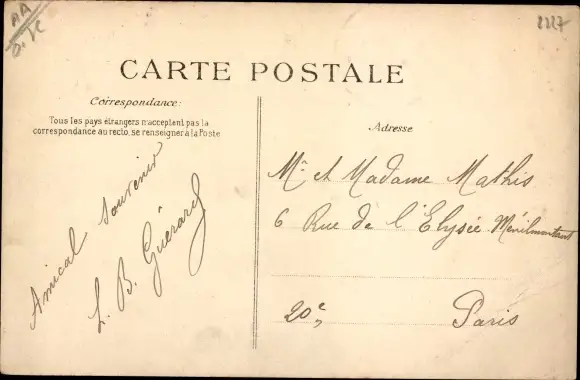 AA
2227
CARTE POSTALE
Correspondance:
Tous les pays étrangers n'acceptent pas la
correspondance au recto, se renseigner à la Poste
Amical souvenir
L. B. Guérard
Adresse
Mr et Madame Mathis
6 Rue de l'Elysée Ménilmontant
20e,
Paris